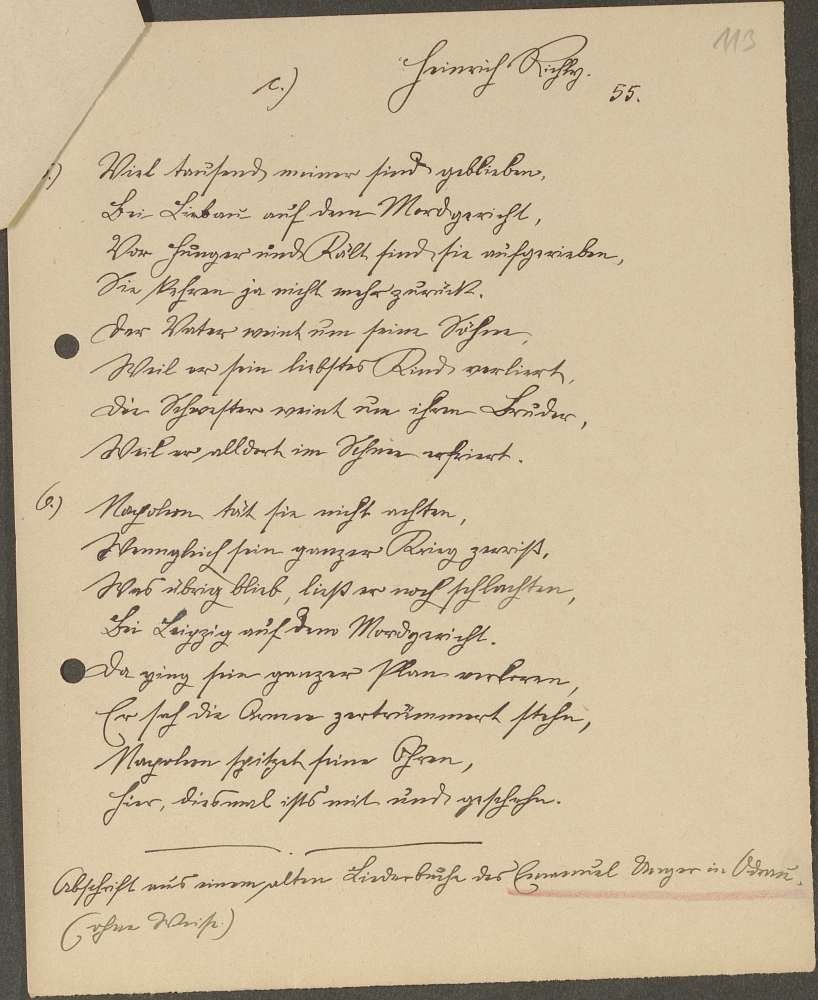 113
c.) Heinrich Richly.
55.
5.) Viel tausend meiner sind geblieben,
Bei Liebau auf dem Mordgericht,
Vor Hunger und Kält sind sie aufgerieben,
Sie kehren ja nicht mehr zurück.
Der Vater weint um seine Söhne,
Weil er sein liebstes Kind verliert,
Die Schwester weint um ihren Bruder,
Weil er alldort im Schnee erfriert.
6.) Napoleon tät sie nicht achten,
Wenngleich sein ganzer Krieg zerriß,
Was übrig blieb, ließ er noch schlachten,
Bei Leipzig auf dem Mordgericht.
Da ging sein ganzer Plan verloren,
Er sah die Armee zertrümmert stehn,
Napoleon spitzet seine Ohren,
Hier, diesmal ists mit uns geschehn.
Abschrift aus einem alten Liederbuche des Emanuel Unger in Odrau.
(ohne Weise.)